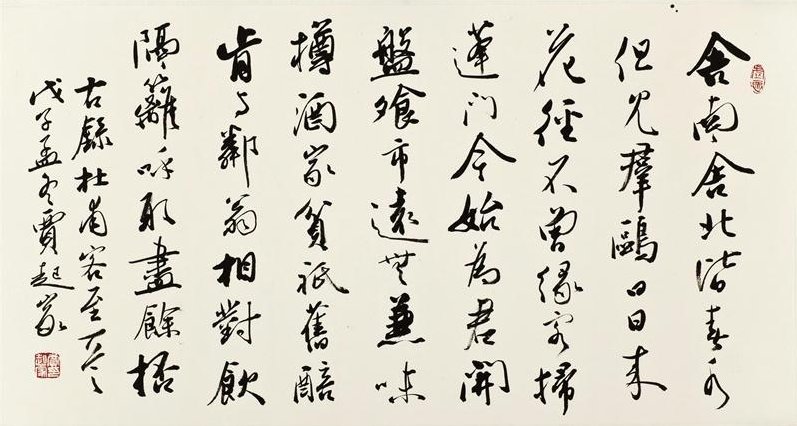 舍南舍北皆春水
但見羣鷗日日來
花徑不曾緣客掃
蓬門今始為君開
盤飧市遠無兼味
樽酒家貧祇舊醅
肯与鄰翁相對飲
隔籬呼取盡餘桮
右錄杜甫客至
戊子孟冬賈起家